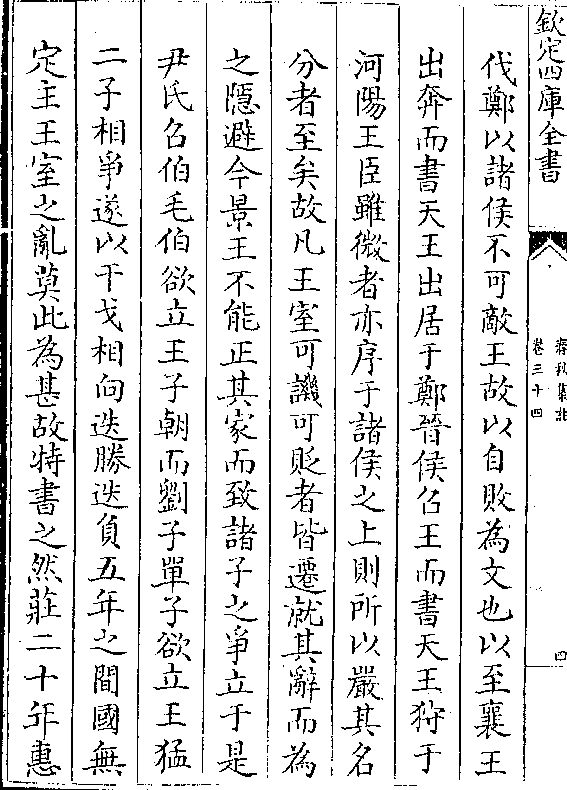 欽定四庫全書
春秋集註
卷三十四
四
伐鄭以諸侯不可敵王故以自敗為文也以至襄王
出奔而書天王出居于鄭晉侯召王而書天王狩于
河陽王臣雖微者亦序于諸侯之上則所以嚴其名
分者至矣故凡王室可譏可貶者皆遷就其辭而為
之隱避今景王不能正其家而致諸子之爭立于是
尹氏召伯毛伯欲立王子朝而劉子單子欲立王猛
二子相爭遂以干戈相向迭勝迭負五年之間國無
定主王室之亂莫此為甚故特書之然莊二十年惠